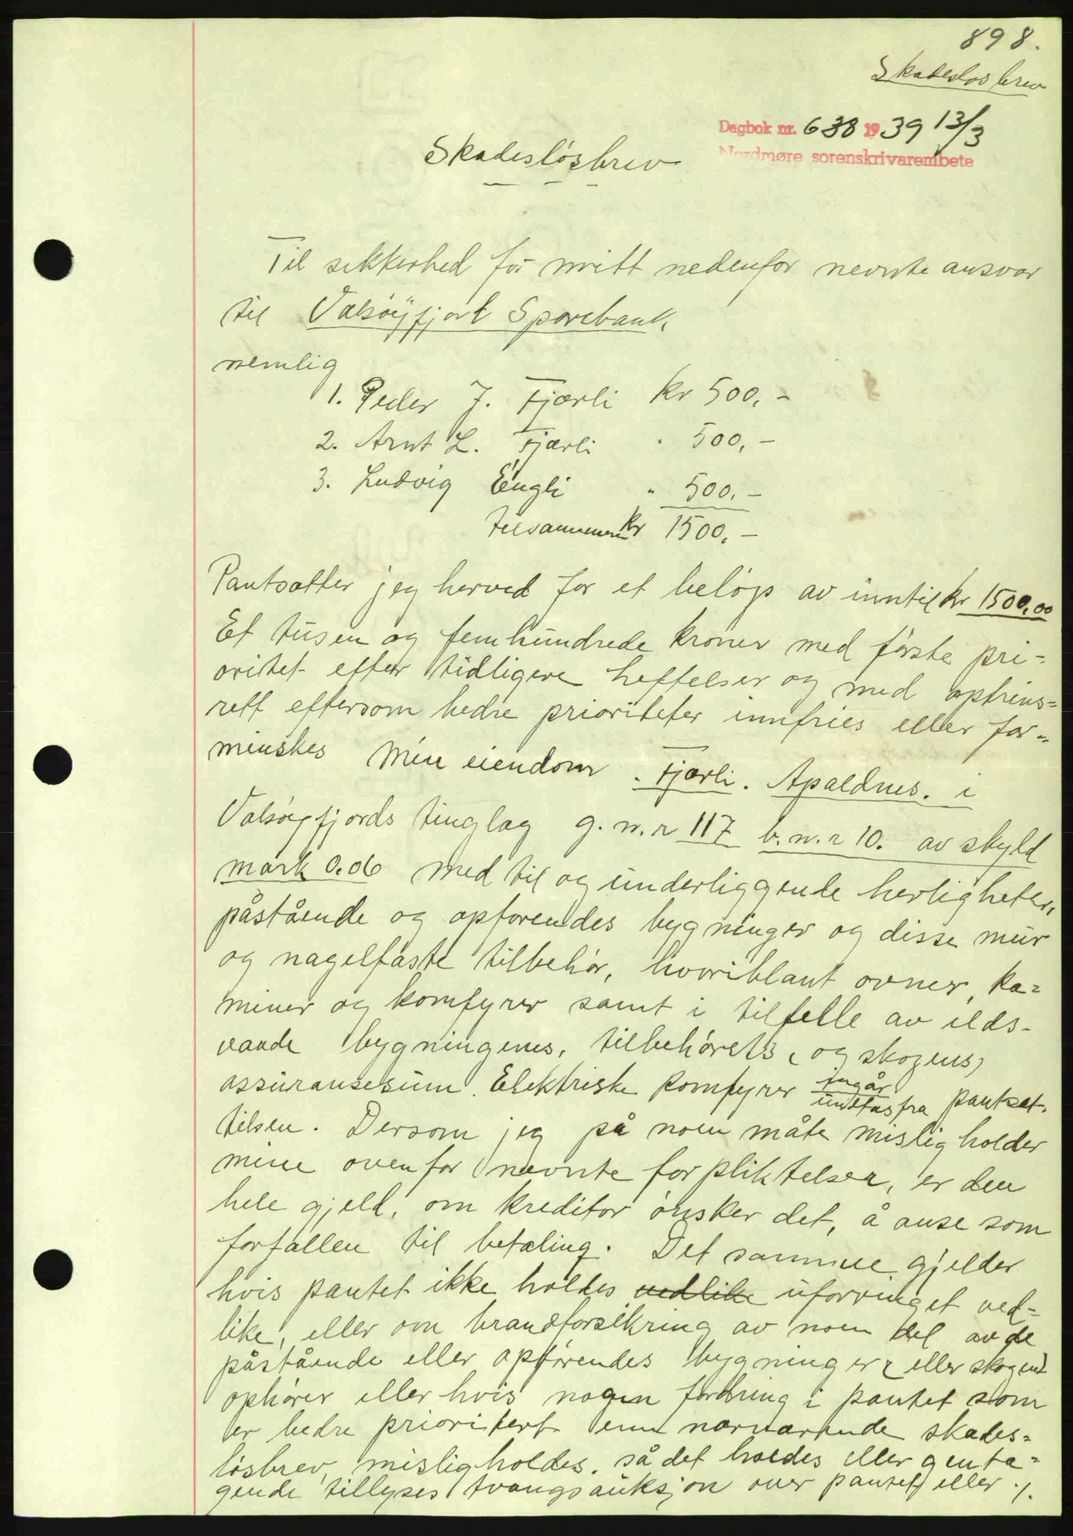 898.
Skadesløsbrev
Dagbok nr. 638 1939 13/3
Nordmøre sorenskrivarembete
Skadesløsbrev
Til sikkerhed for mitt nedenfor nevnte ansvar
til Valsøyfjord Sparebank
nemlig
1. Peder J. Fjærli kr 500,-
2. Arnt L. Fjærli " 500,-
3. Ludvig Engli " 500,-
tilsammen kr 1500,-
Pantsetter jeg herved for et beløp av inntil kr 1500,00
Et tusen og femhundrede kroner med første pri=
oritet efter tidligere heftelser og med optrins=
rett eftersom bedre prioriteter innfries eller for=
minskes min eiendom. Fjærli. Apaldnes. i
Valsøyfjords tinglag g.n.r 117 b.n.r 10. av skyld
mark 0.06 med til og underliggende herligheter,
påstående og opførendes bygninger og disse mur
og nagelfaste tilbehør, hvoriblant ovner, ka=
miner og komfyrer samt i tilfelle av ilds-
vaade bygningenes, tilbehørets, (og skogens)
assuransesum. Elektriske komfyrer inngår
undtas fra pantset-
telsen. Dersom jeg på noen måte misligholder
mine ovenfor nevnte forpliktelser, er den
hele gjeld, om kreditor ønsker det, å anse som
forfallen til betaling. Det samme gjelder
hvis pantet ikke holdes vedlike uforringet ved=
like, eller om brandforsikring av noen del av de
påstående eller opførendes bygninger (eller skogen)
ophører eller hvis nogen fordring i pantet som
er bedre prioritert enn nærværende skades=
løsbrev, misligholdes, så det holdes eller genta=
gende tillyses tvangsauksjon over pantet eller ./.